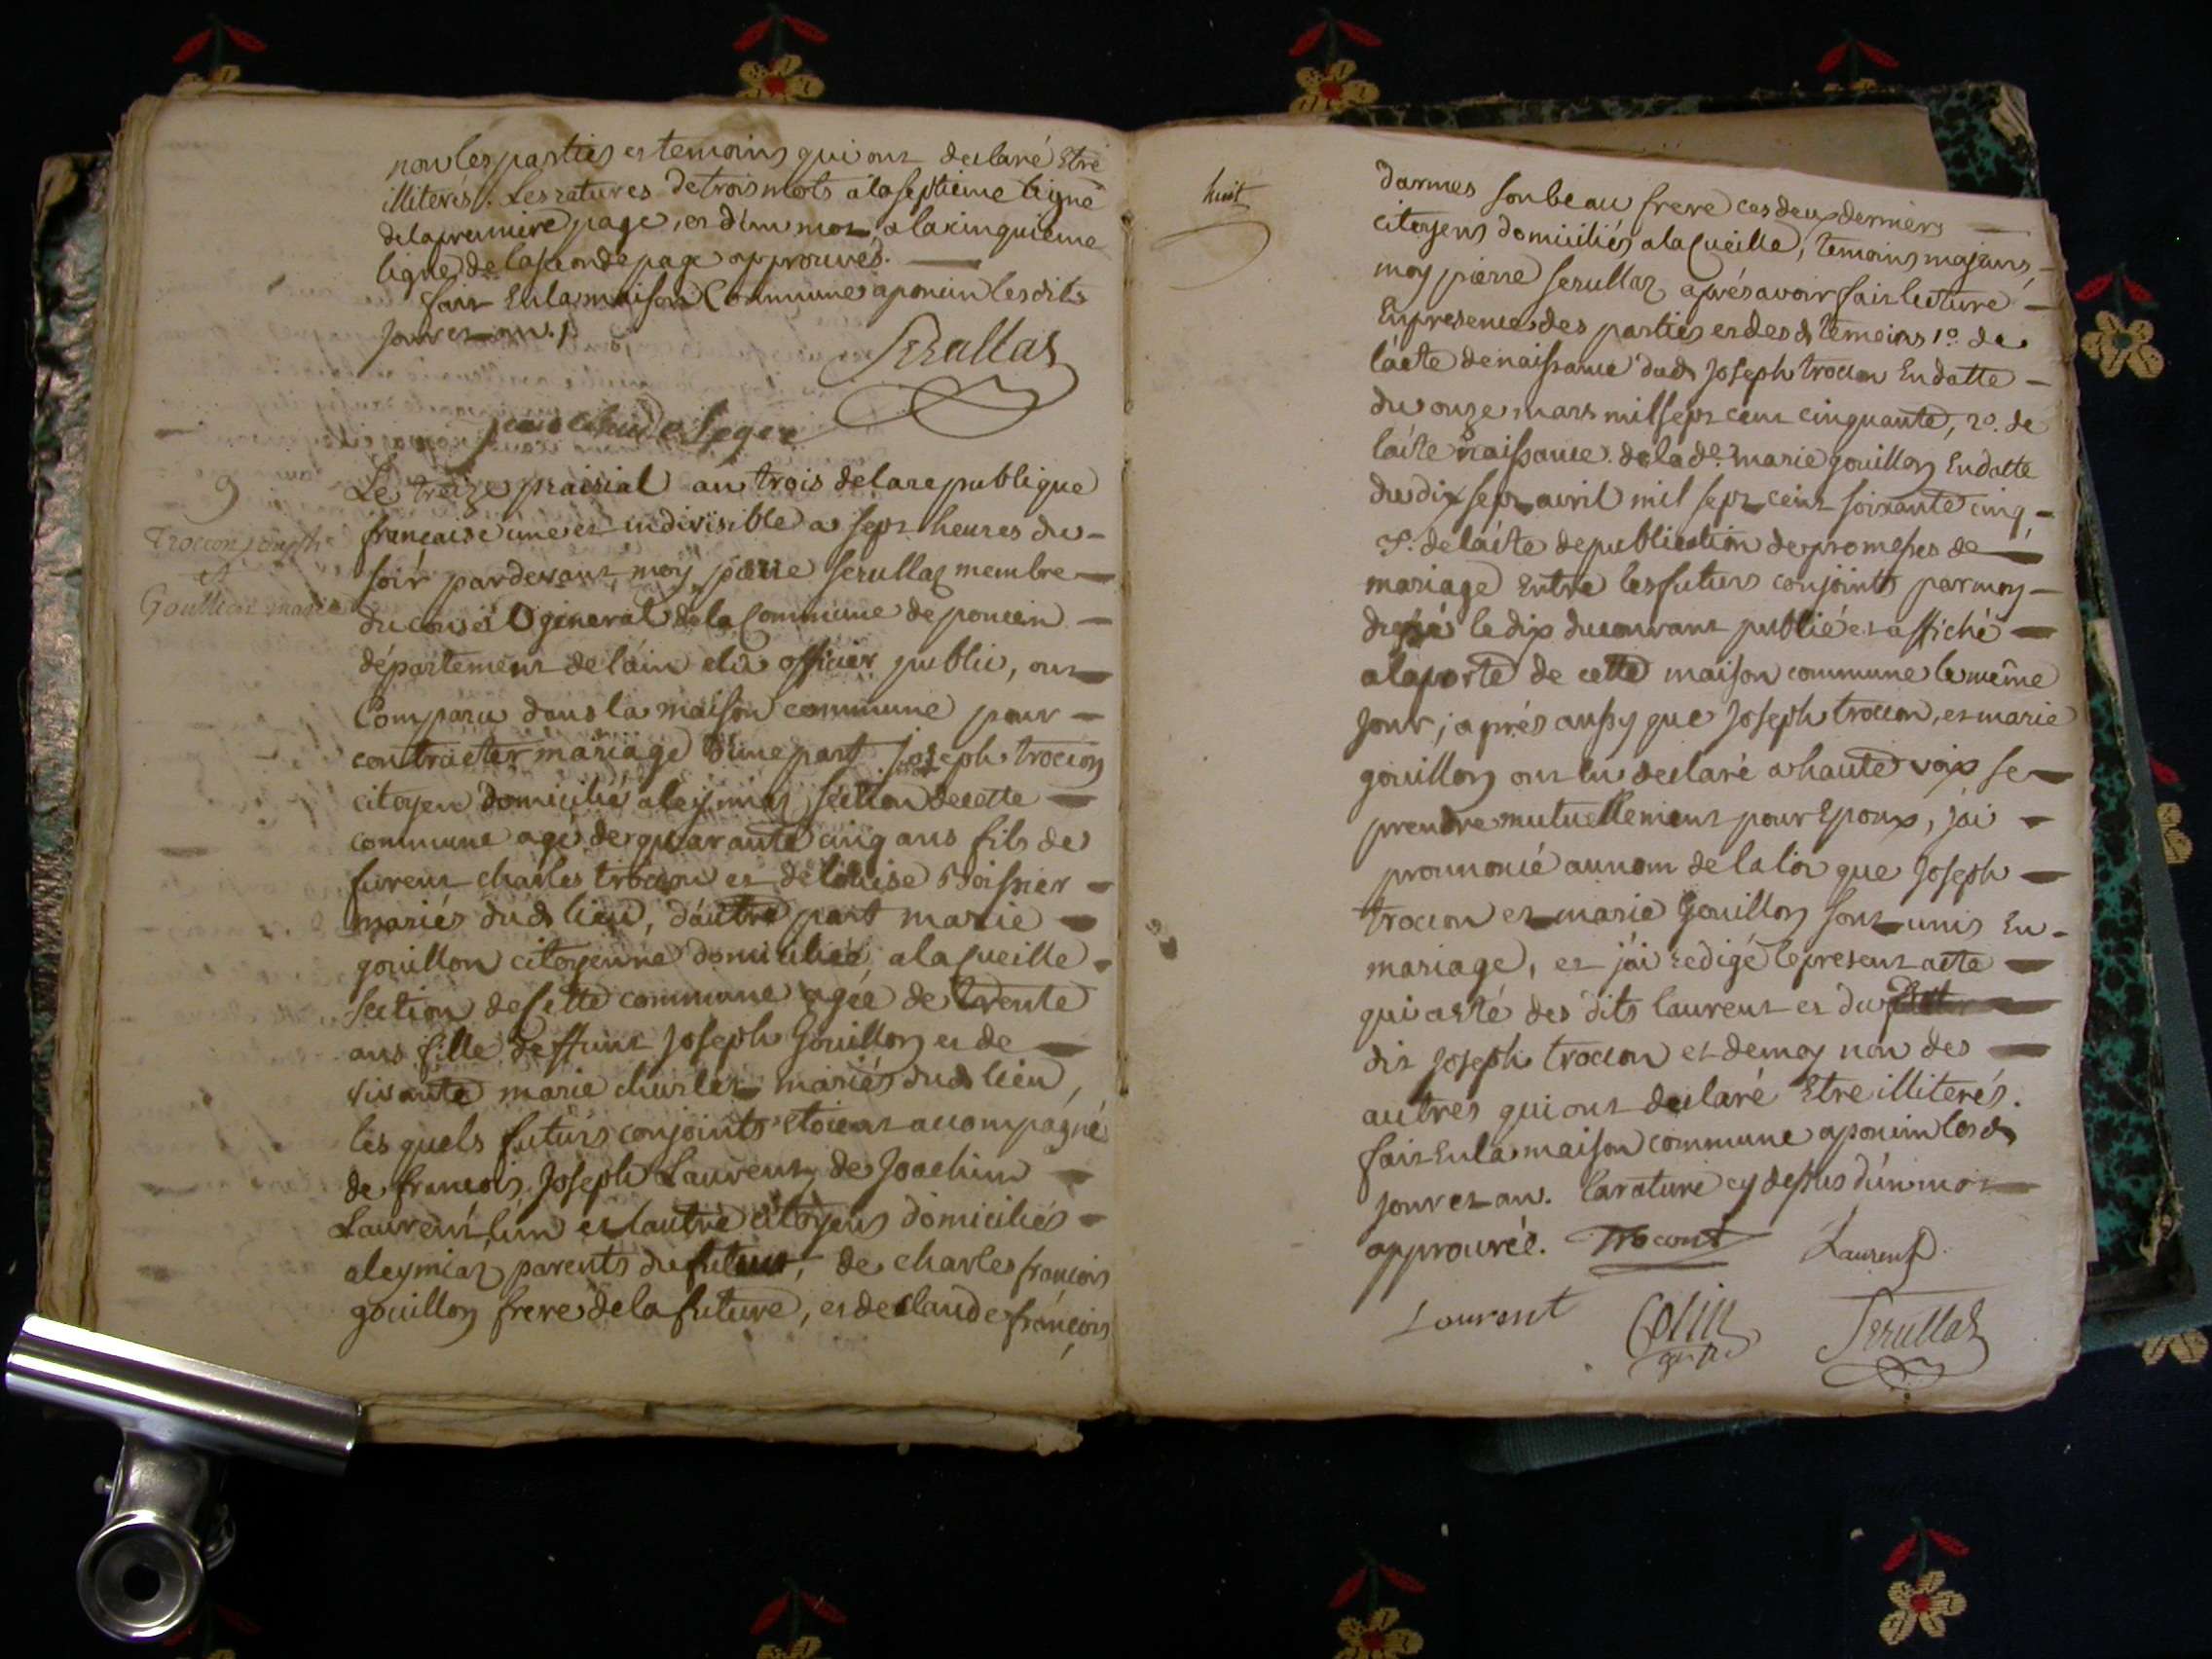 non les parties et temoins qui ont declaré Etre
illiterés. Les ratures de trois mots a la septieme ligne
de la premiere page, et d'un mot a la cinquieme
ligne de la seconde page approuvés.
fait En la maison Commune a poncin lesdits
jour et an.
Serullaz
jean claude Leger
9
Trocon joseph
et
Gouillon marie
Le treize prairial an trois de la republique
francaise une et indivisible a sept heures du
soir pardevant moy pierre serullaz membre
du conseil general de la Commune de poncin
département de l'ain elu officier public, ont
Comparu dans la maison commune pour
contracter mariage d'une part joseph trocon
citoyen domicilié a leymiaz section de cette
commune agé de quarante cinq ans fils de
furent charles trocon et de louise Boissier
mariés dud lieu, d'autre part marie
gouillon citoyenne domiciliée, a la Cueille
section de Cette commune agée de trente
ans fille deffunt joseph Gouillon et de
vivante marie charlet mariés dud lieu,
les quels futurs conjoints Etoient accompagné
de francois joseph Laurent, de joachim
Laurent, lun et lautre citoyens domiciliés
a leymiaz parents du futeur, de charles françois
gouillon frere de la future, et de claude françois
huit
darmes son beau frere ces deux derniers
citoyens domiciliés a la Cueille, temoins majeurs,
moy pierre serullaz aprés avoir fait lecture
En presence des parties et des d temoins 1o. de
l'acte de naissance dud joseph trocon En datte
du onze mars mil sept cent cinquante, 2o. de
l'acte naissance de la de. marie gouillon En datte
du dix sept avril mil sept cent soixante cinq,
3o. de l'acte de publication de promesses de
mariage Entre les futurs conjoints par moy
dressé le dix du courant publié et affiché
a la porte de cette maison commune le même
jour; aprés aussy que joseph trocon, et marie
gouillon ont Eu declaré a haute voix se
prendre mutuellement pour Epoux, j'ai
prononcé au nom de la loi que joseph
trocon et marie Gouillon sont unis En
mariage, et j'ai redigé le present acte
qui a sté des dits laurent et du
dit joseph trocon et de moy non des
autres qui ont declaré Etre illiterés.
fait En la maison commune a poncin les d
jour et an. la rature cy dessus d'un mot
approuvée. Trocont Laurent
Laurent Colin Serullaz